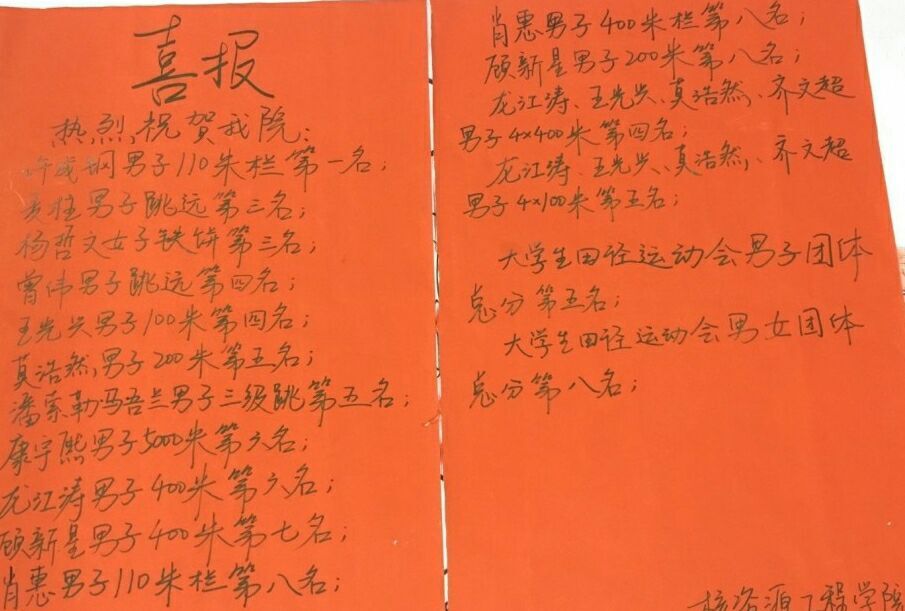 喜报
热烈祝贺我院:
许成钢男子110米栏第一名;
麦桂男子跳远第三名;
杨哲文女子铁饼第三名;
曾伟男子跳远第四名;
王光兴男子100米第四名;
莫浩然男子200米第五名;
潘索勒冯吾兰男子三级跳第五名;
康宇熙男子5000米第六名;
龙江涛男子400米第六名;
顾新星男子400米第七名;
肖惠男子110米栏第八名;
肖惠男子400米栏第八名;
顾新星男子200米第八名;
龙江涛、王光兴、莫浩然、齐文超
男子4×400米第四名;
龙江涛、王光兴、莫浩然、齐文超
男子4×100米第五名;
大学生田径运动会男子团体
总分第五名;
大学生田径运动会男女团体
总分第八名;
核资源工程学院